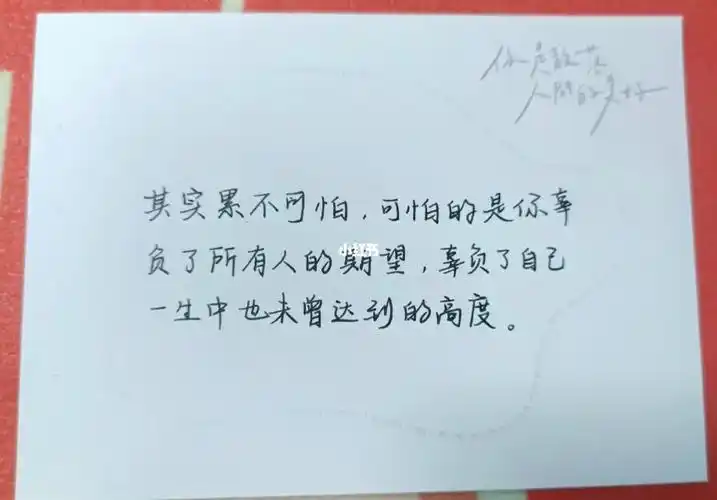 人间的美好
其实累不可怕，可怕的是你辜
负了所有人的期望，辜负了自己
一生中也未曾达到的高度。
小红书